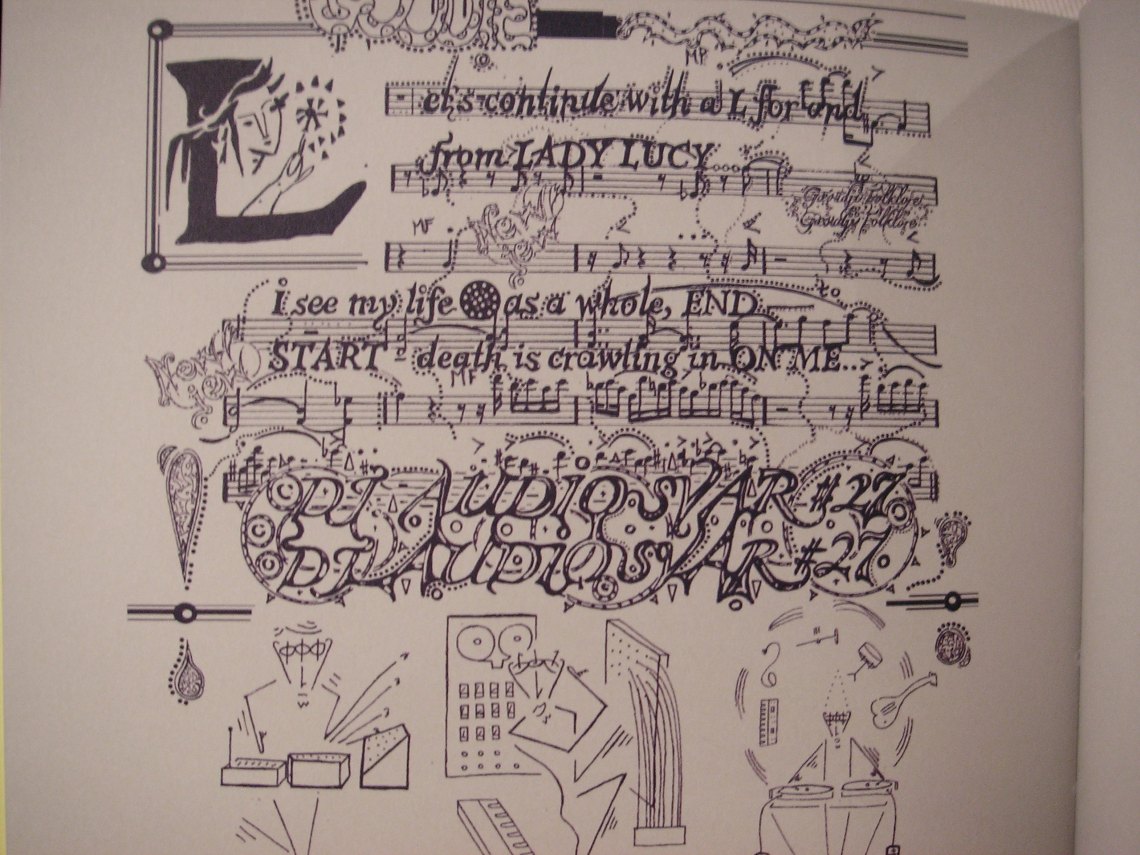 MF
Let's continue with a L for and
from LADY LUCY
Groudyo folklore
Groudyo folklore
MF
NEW
i see my life as a whole, END
START death is crawling in ON ME...
MF
DJ AUDIOSVAR #27
DJ AUDIOSVAR #27